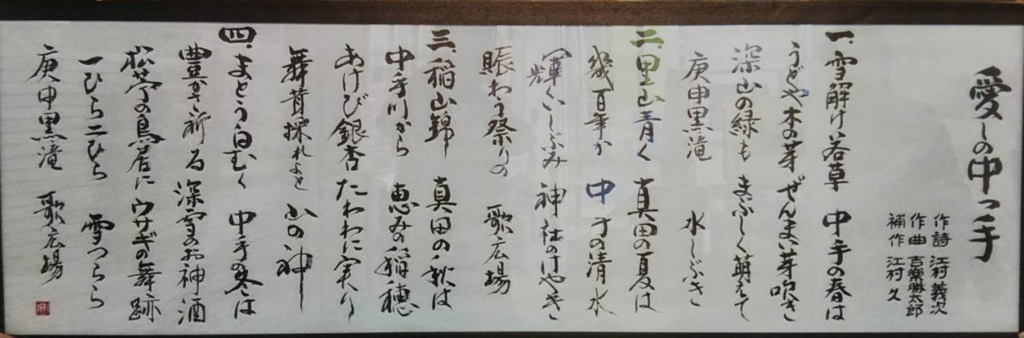 愛しの中っ手
作詩 江村義次
作曲 吉樂勝太郎
補作 江村久
一、雪解け若草 中手の春は
うどや木の芽 ぜんまい芽吹き
深山の緑も まぶしく萌えて
庚申黒滝 水しぶき
二、里山青く 真田の夏は
幾百年か 中手の清水
輝くいしぶみ 神社のけやき
賑わう祭りの 歌広場
三、稲山錦 真田の秋は
中手川から 恵みの稲穂
あけび銀杏 たわわに実り
舞茸採れよと 山の神
四、まとう白むく 中手の冬は
豊かさ祈る 深雪のお神酒
松苧の鳥居に ウサギの舞跡
一ひら二ひら 雪つらら
庚申黒滝 歌広場